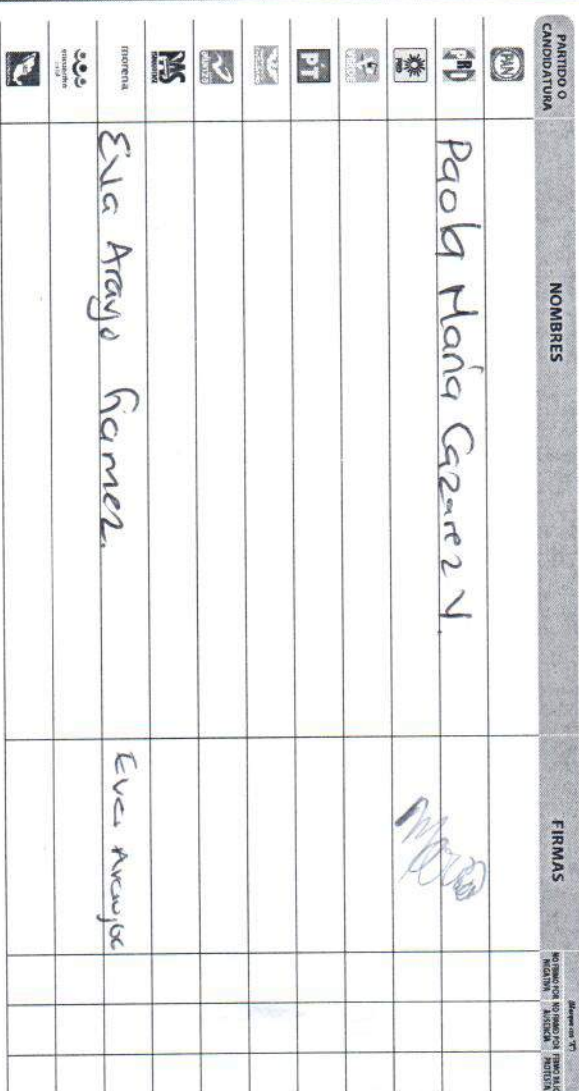 PARTIDO O CANDIDATURA
NOMBRES
FIRMAS
(Marque con "X")
NO FIRMO POR NEGATIVA
NO FIRMO POR AUSENCIA
FIRMO BAJO PROTESTA
PAN
PRI
Paola María Cazarez V.
PRD
PT
PAS
morena
Eva Araujo Gamez.
Eva Araujo
encuentro social